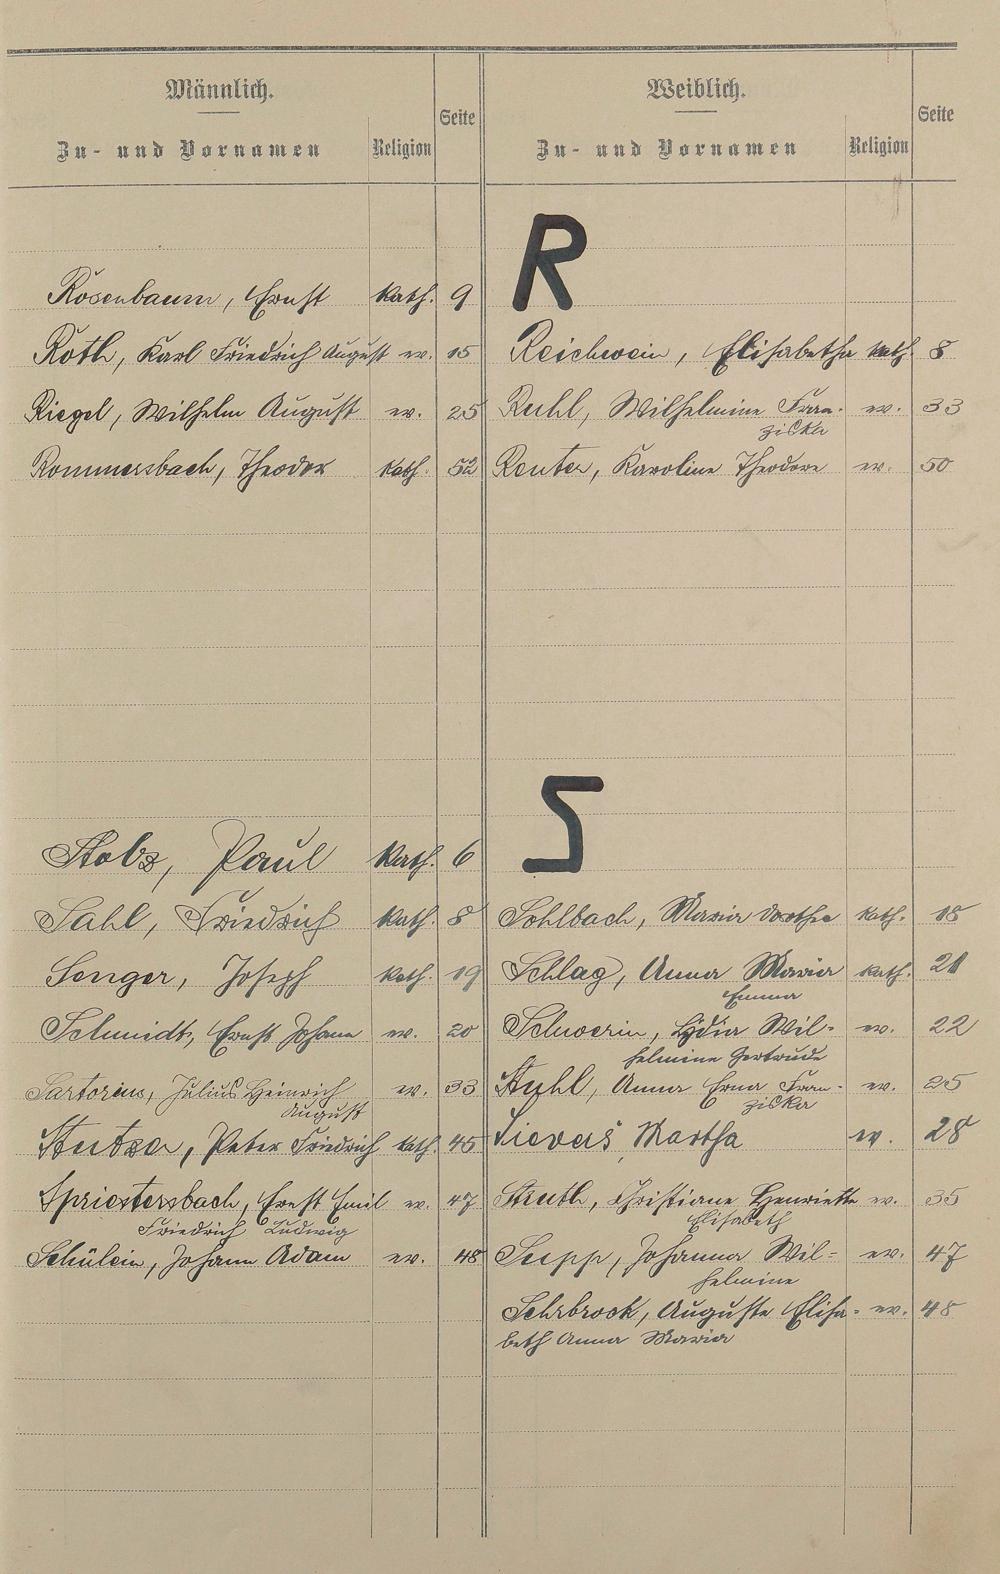 Männlich.
Zu- und Vornamen
Religion
Seite
Weiblich.
Zu- und Vornamen
Religion
Seite
R
Rosenbaum, Ernst kath. 9
Roth, Karl Friedrich August ev. 15
Riegel, Wilhelm August ev. 25
Rommersbach, Theodor kath. 52
Reichwein, Elisabetha kath. 8
Ruhl, Wilhelmine Fran- ev. 33
ziska
Reuter, Karoline Theodore ev. 50
S
Stolz, Paul kath. 6
Sahl, Friedrich kath. 8
Senger, Joseph kath. 19
Schmidt, Ernst Johann ev. 20
Sartorius, Julius Heinrich ev. 33
August
Peter Friedrich kath. 45
Spriestersbach, Ernst Emil ev. 47
Friedrich Ludwig
Schülein, Johann Adam ev. 48
Sohlbach, Maria Dorothea kath. 18
Schlag, Anna Maria kath. 21
Emma
Schwerin, Lydia Wil- ev. 22
helmine Gertrude
Stuhl, Anna Erna Fran- ev. 25
ziska
Sievers, Martha ev. 28
Struth, Christiane Henriette ev. 35
Elisabeth
Seepp, Johanna Wil- ev. 47
helmine
Sehrbrock, Auguste Elisa- ev. 48
beth Anna Maria